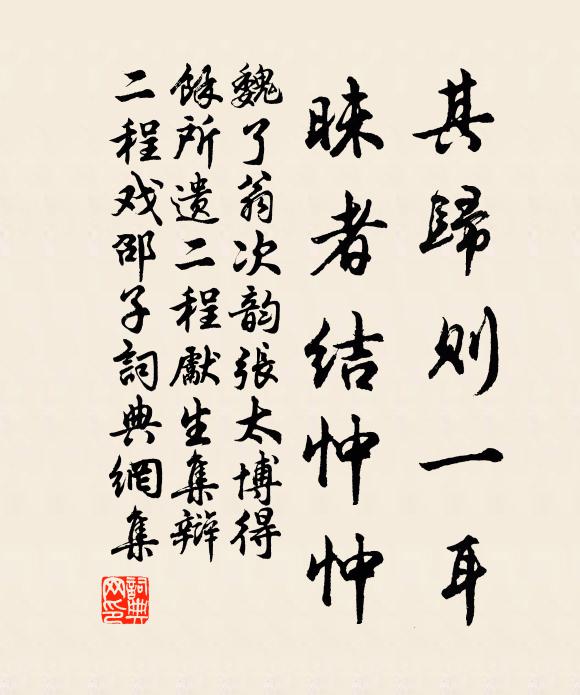 其歸則一耳
昧者結忡忡
魏了翁次韵張太博得
餘所遺二程獻生集辯
二程戏邵子詞典網集
詞典网印